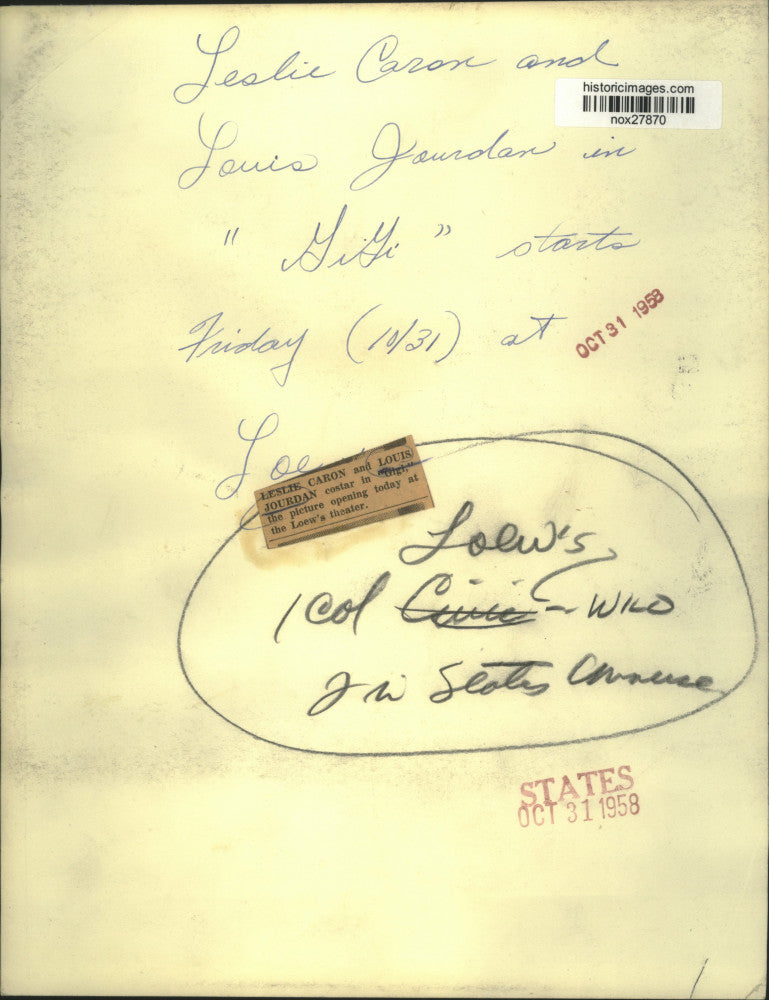 Leslie Caron and
historicimages.com
nox27870
Louis Jourdan in
"GiGi" starts
Friday (10/31) at
OCT 31 1958
Loe
LESLIE CARON and LOUIS
JOURDAN costar in "Gigi,"
the picture opening today at
the Loew's theater.
Loew's
1 col Civic - WILD
2 in States
STATES
OCT 31 1958